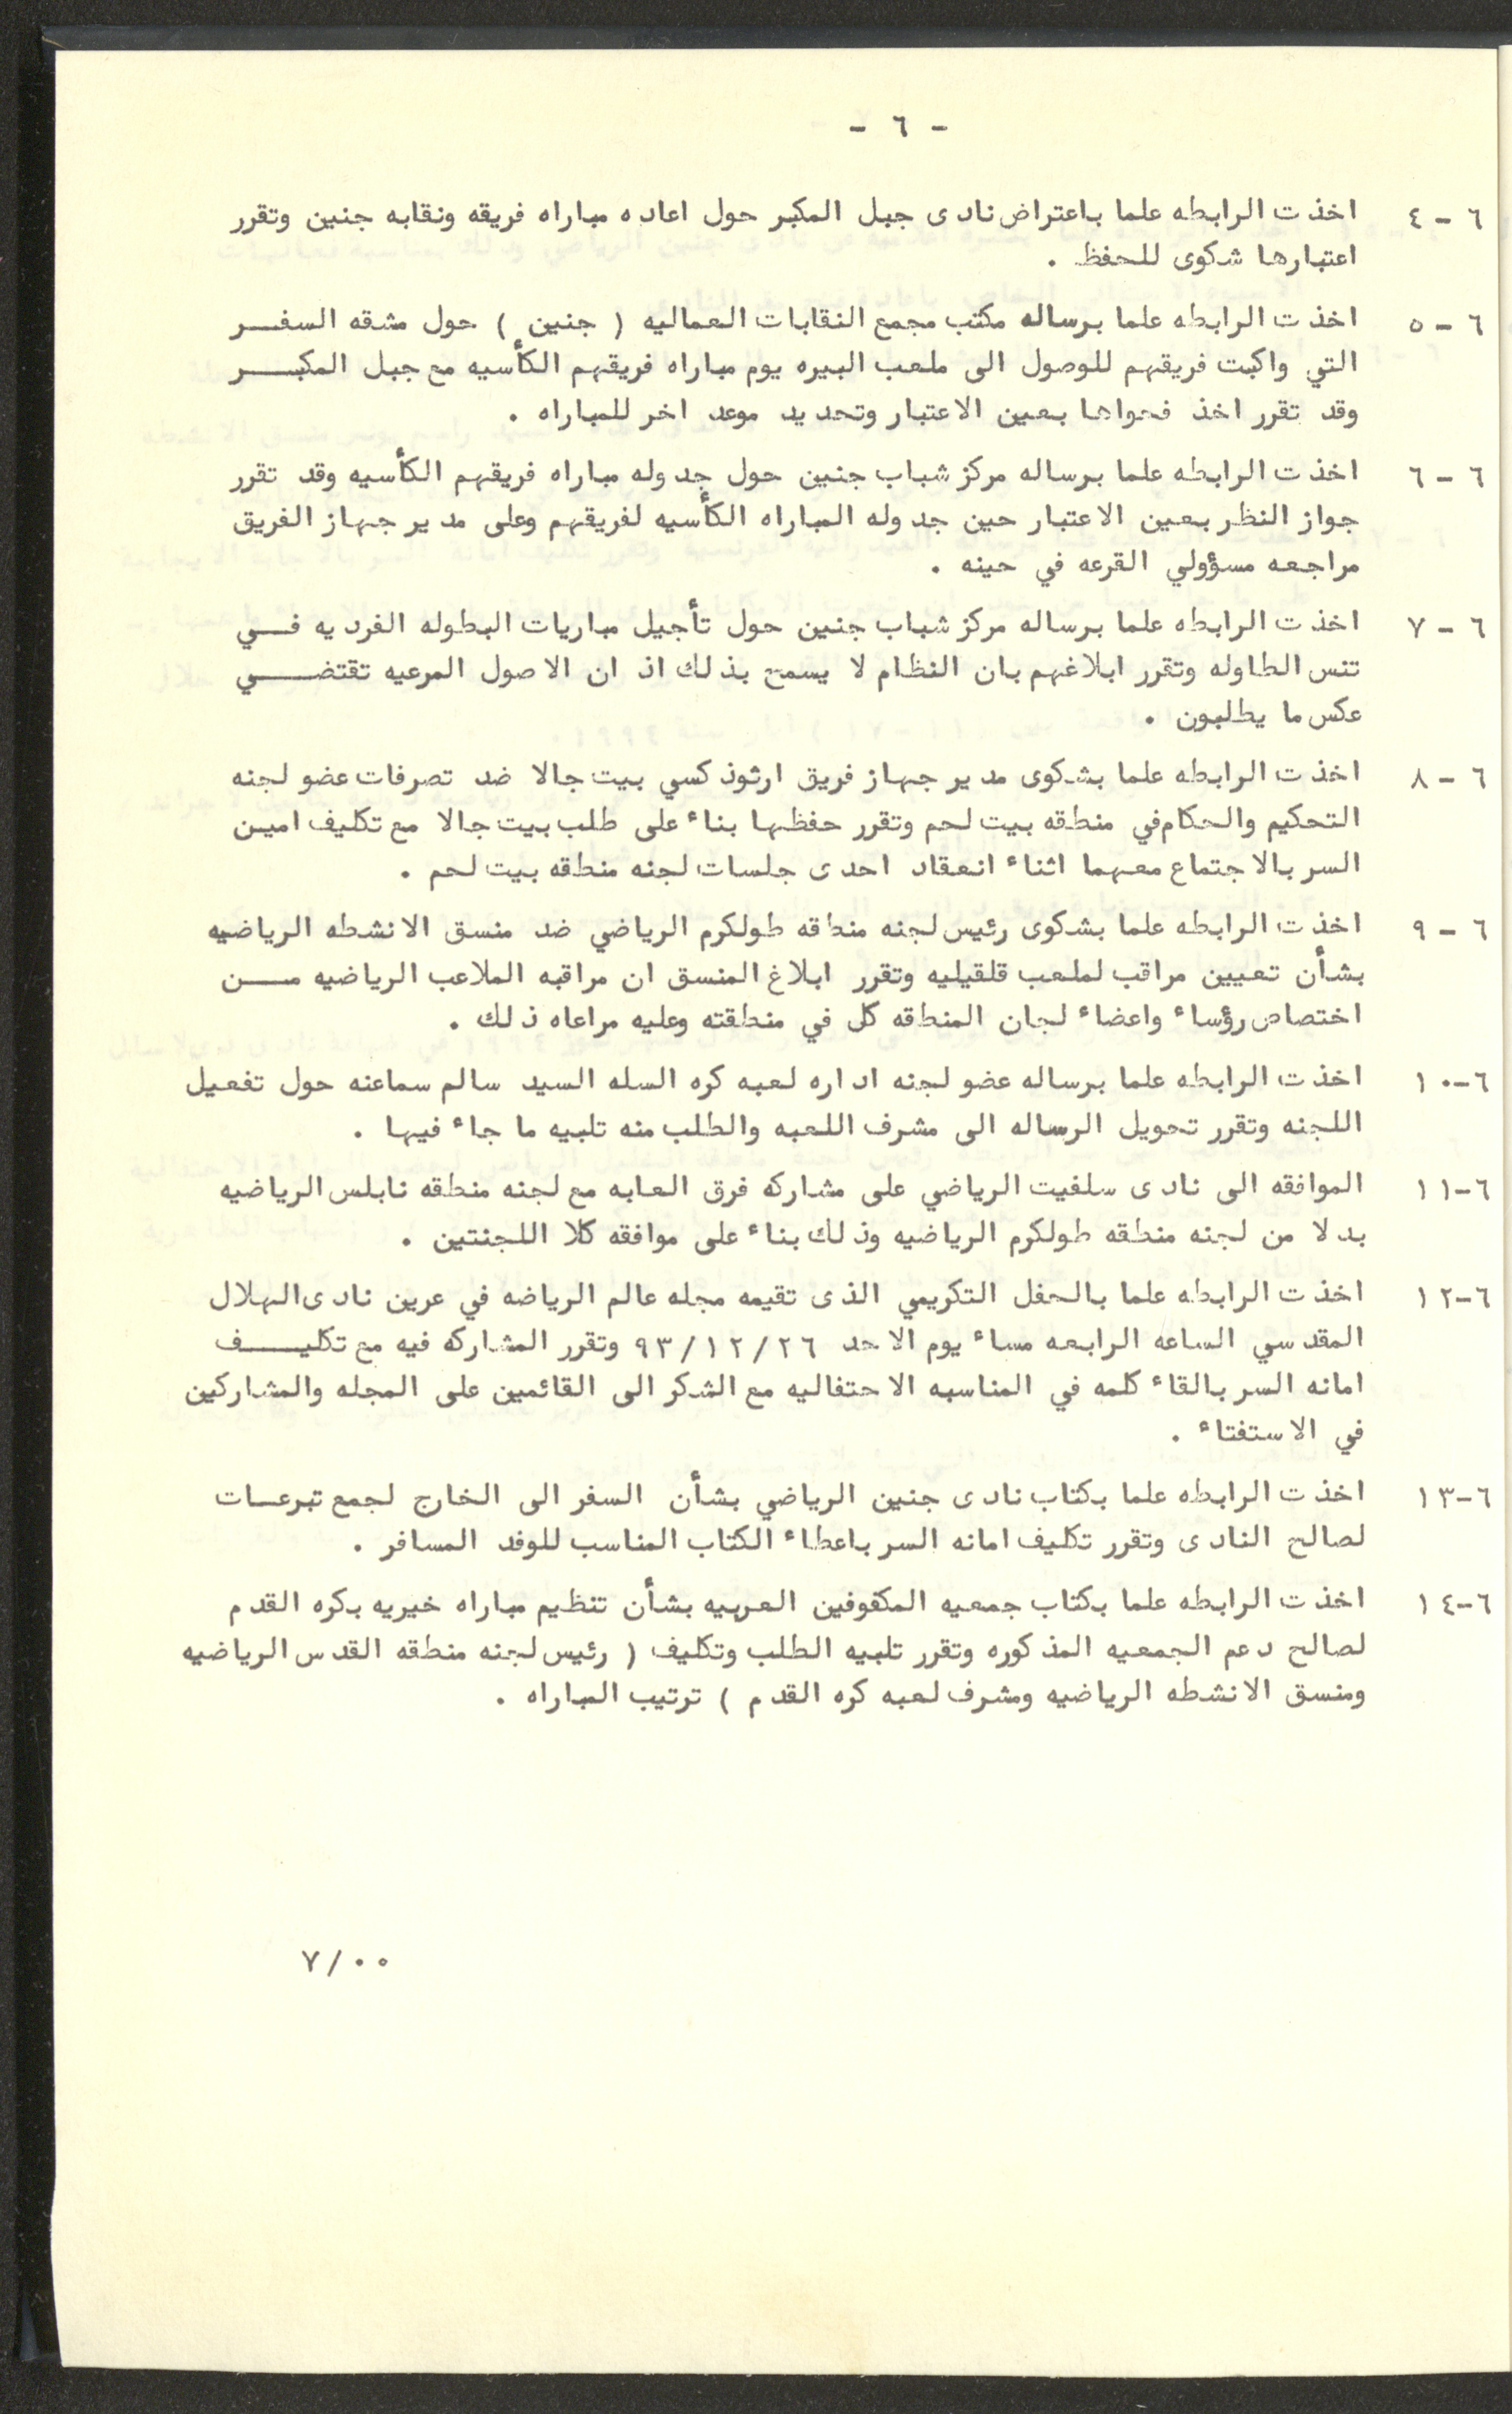 - ٦ -
٦ - ٤ اخذت الرابطه علما باعتراض نادى جبل المكبر حول اعاده مباراه فريقه ونقابه جنين وتقرر
اعتبارها شكوى للحفظ .
٦ - ٥ اخذت الرابطه علما برساله مكتب مجمع النقابات العماليه ( جنين ) حول مشقه السفر
التي واكبت فريقهم للوصول الى ملعب البيره يوم مباراه فريقهم الكأسيه مع جبل المكبر
وقد تقرر اخذ فحواها بعين الاعتبار وتحديد موعد اخر للمباراه .
٦ - ٦ اخذت الرابطه علما برساله مركز شباب جنين حول جدوله مباراه فريقهم الكأسيه وقد تقرر
جواز النظر بعين الاعتبار حين جدوله المباراه الكأسيه لفريقهم وعلى مدير جهاز الفريق
مراجعه مسؤولي القرعه في حينه .
٦ - ٧ اخذت الرابطه علما برساله مركز شباب جنين حول تأجيل مباريات البطوله الفرديه في
تنس الطاوله وتقرر ابلاغهم بان النظام لا يسمح بذلك اذ ان الاصول المرعيه تقتضي
عكس ما يطلبون .
٦ - ٨ اخذت الرابطه علما بشكوى مدير جهاز فريق ارثوذكسي بيت جالا ضد تصرفات عضو لجنه
التحكيم والحكام في منطقه بيت لحم وتقرر حفظها بناء على طلب بيت جالا مع تكليف امين
السر بالاجتماع معهما اثناء انعقاد احدى جلسات لجنه منطقه بيت لحم .
٦ - ٩ اخذت الرابطه علما بشكوى رئيس لجنه منطقه طولكرم الرياضي ضد منسق الانشطه الرياضيه
بشأن تعيين مراقب لملعب قلقيليه وتقرر ابلاغ المنسق ان مراقبه الملاعب الرياضيه من
اختصاص رؤساء واعضاء لجان المنطقه كل في منطقته وعليه مراعاه ذلك .
٦-١٠ اخذت الرابطه علما برساله عضو لجنه اداره لعبه كره السله السيد سالم سماعنه حول تفعيل
اللجنه وتقرر تحويل الرساله الى مشرف اللعبه والطلب منه تلبيه ما جاء فيها .
٦-١١ الموافقه الى نادى سلفيت الرياضي على مشاركه فرق العابه مع لجنه منطقه نابلس الرياضيه
بدلا من لجنه منطقه طولكرم الرياضيه وذلك بناء على موافقه كلا اللجنتين .
٦-١٢ اخذت الرابطه علما بالحفل التكريمي الذى تقيمه مجله عالم الرياضه في عرين نادى الهلال
المقدسي الساعه الرابعه مساء يوم الاحد ٩٣/١٢/٢٦ وتقرر المشاركه فيه مع تكليف
امانه السر بالقاء كلمه في المناسبه الاحتفاليه مع الشكر الى القائمين على المجله والمشاركين
في الاستفتاء .
٦-١٣ اخذت الرابطه علما بكتاب نادى جنين الرياضي بشأن السفر الى الخارج لجمع تبرعات
لصالح النادى وتقرر تكليف امانه السر باعطاء الكتاب المناسب للوفد المسافر .
٦-١٤ اخذت الرابطه علما بكتاب جمعيه المكفوفين العربيه بشأن تنظيم مباراه خيريه بكره القدم
لصالح دعم الجمعيه المذكوره وتقرر تلبيه الطلب وتكليف ( رئيس لجنه منطقه القدس الرياضيه
ومنسق الانشطه الرياضيه ومشرف لعبه كره القدم ) ترتيب المباراه .
٧/٠٠